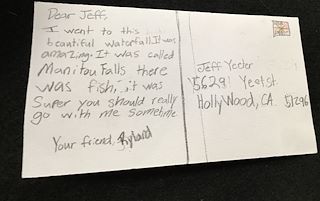 Dear Jeff,
I went to this
beautiful waterfall. It was
amazing. It was called
Manitou Falls there
was fish, it was
Super you should really
go with me sometime
Your friend, Ryland
Jeff Yeeter
5629 Yeet st.
HollyWood, CA. 51296